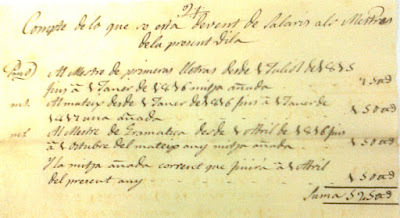 Compte de lo que se esta Devent de Salaris als Mestres
de la present Vila
Al Mestre de primeras lletras desde 1 Juliol de 1815
fins á 1 Janer de 1816 mitja añada 250
Al mateix desde 1 Janer de 1816 fins á 1 Janer de
1817 una añada 500
Al Mestre de Gramatica desde 1 Abril de 1816 fins
á 1 Octubre del mateix any mitja añada 150
Y la mitja añada corrent que finirá á 1 Abril
del present any 150
Suma